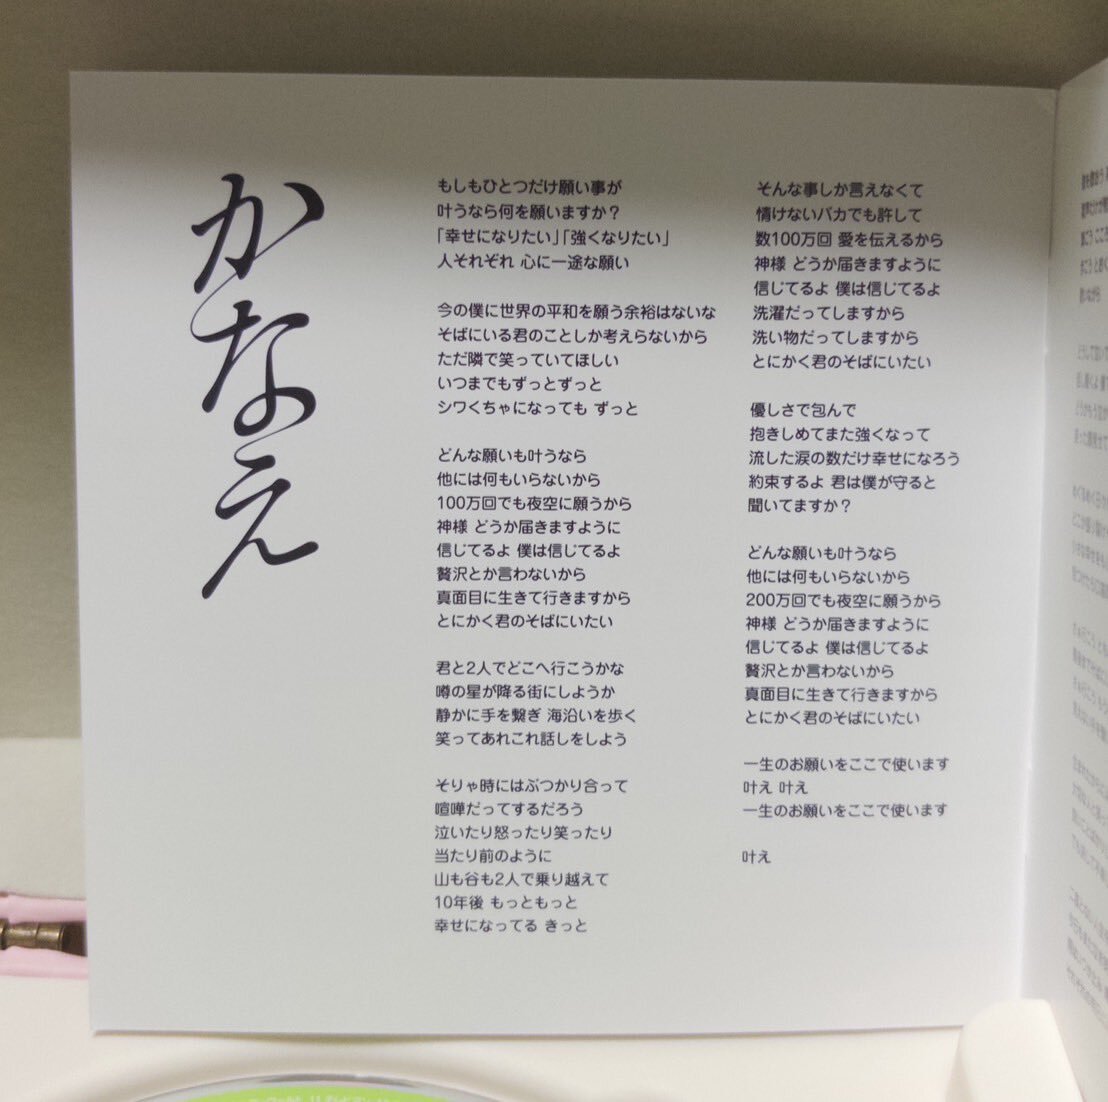 かなえ
もしもひとつだけ願い事が
叶うなら何を願いますか？
「幸せになりたい」「強くなりたい」
人それぞれ 心に一途な願い
今の僕に世界の平和を願う余裕はないな
そばにいる君のことしか考えらないから
ただ隣で笑っていてほしい
いつまでもずっとずっと
シワくちゃになっても ずっと
どんな願いも叶うなら
他には何もいらないから
100万回でも夜空に願うから
神様 どうか届きますように
信じてるよ 僕は信じてるよ
贅沢とか言わないから
真面目に生きて行きますから
とにかく君のそばにいたい
君と2人でどこへ行こうかな
噂の星が降る街にしようか
静かに手を繋ぎ 海沿いを歩く
笑ってあれこれ話しをしよう
そりゃ時にはぶつかり合って
喧嘩だってするだろう
泣いたり怒ったり笑ったり
当たり前のように
山も谷も2人で乗り越えて
10年後 もっともっと
幸せになってる きっと
そんな事しか言えなくて
情けないバカでも許して
数100万回 愛を伝えるから
神様 どうか届きますように
信じてるよ 僕は信じてるよ
洗濯だってしますから
洗い物だってしますから
とにかく君のそばにいたい
優しさで包んで
抱きしめてまた強くなって
流した涙の数だけ幸せになろう
約束するよ 君は僕が守ると
聞いてますか？
どんな願いも叶うなら
他には何もいらないから
200万回でも夜空に願うから
神様 どうか届きますように
信じてるよ 僕は信じてるよ
贅沢とか言わないから
真面目に生きて行きますから
とにかく君のそばにいたい
一生のお願いをここで使います
叶え 叶え
一生のお願いをここで使います
叶え